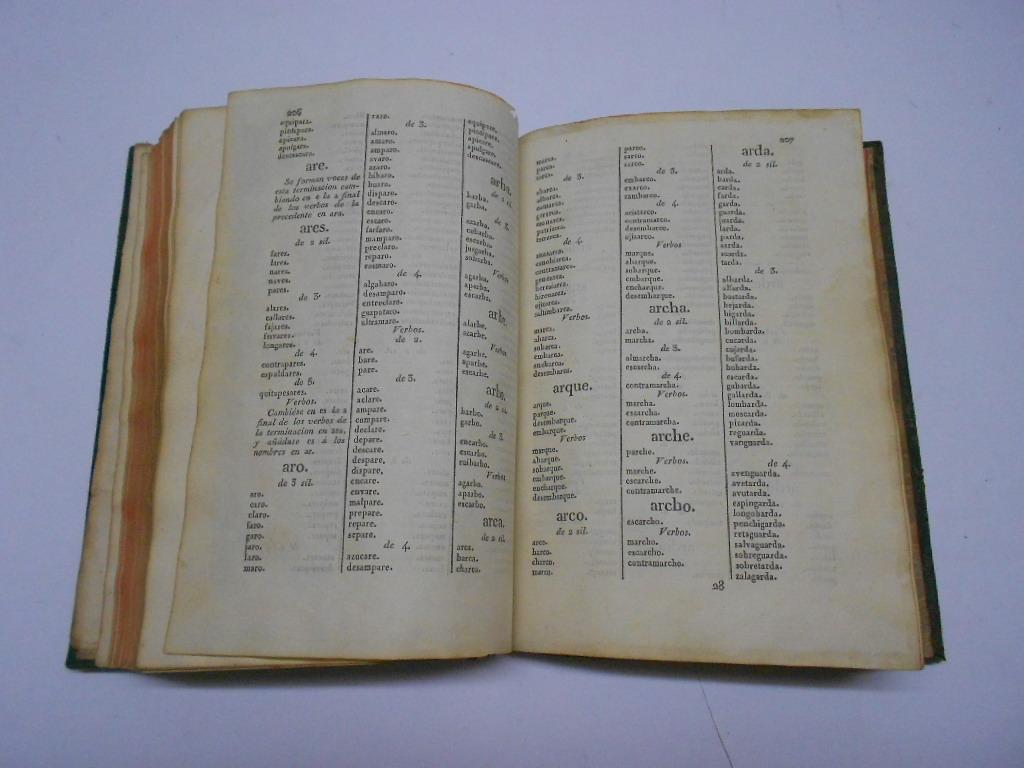 206
equipara.
pintipara.
apicara.
apulgara.
descascara.
are.
Se forman voces de
esta terminacion cam-
biando en e la a final
de los verbos de la
precedente en ara.
ares.
de 2 sil.
fares.
lares.
nares.
naves.
pares.
de 3.
alares.
callares.
fajares.
ijares.
lungares.
de 4.
contrapares.
espaldares.
de 5.
quitapesares.
Verbos.
Cambiése en es la a
final de los verbos de
la terminacion en ara,
y añádase es á los
nombres en ar.
aro.
de 3 sil.
aro.
caro.
claro.
faro.
garo.
jaro.
laro.
maro.
raro.
de 3.
almaro.
amaro.
amparo.
avaro.
azaro.
búbaro.
huaro.
disparo.
descaro.
encaro.
escaro.
farfaro.
mamparo.
preclaro.
reparo.
rosmaro.
de 4.
algabaro.
desamparo.
entreclaro.
guapataro.
ultramaro.
Verbos.
de 2.
are.
bare.
pare.
de 3.
acare.
aclaro.
ampare.
compare.
declare.
depare.
descare.
despare.
dispare.
encare.
envare.
malpare.
prepare.
repare.
separe.
de 4.
azucare.
desampare.
equipare.
pintipare.
apicare.
apulgare.
descascare.
arba.
de 2 sil.
barba.
garba.
de 3.
azarba.
cobarba.
escarba.
jusgarba.
sobarba.
Verbos
agarba.
aparba.
escarba.
arbe.
alarbe.
acarbe.
Verbos
agarbe.
aparbe.
escarbe.
arbo.
de 2 sil.
barbo.
garbo.
de 3.
encarbo.
escarbo.
ruibarbo.
Verbos
agarbo.
aparbo.
escarbo.
arca.
de 2 sil.
arca.
barca.
charca.
207
marca.
parca.
de 3.
abarca.
albarca.
comarca.
monarca.
patriarca.
tetrarca.
de 4.
anasarca.
contramarca.
heresiarca.
Verbos.
marca.
abarca.
sobarca.
embarca.
encharca.
desembarca.
arque.
arque.
parque.
desembarque.
embarque.
Verbos
marque.
abarque.
sobarque.
embarque.
encharque.
desembarque.
arco.
de 2 sil.
arco.
barco.
charco.
marco.
parco.
sarco.
zarco.
de 3.
embarco.
exarco.
zambarco.
de 4.
aristarco.
contramarco.
desembarco.
ojizarco.
Verbos
marque.
abarque.
sobarque.
embarque.
encharque.
desembarque.
archa.
de 2 sil.
archa.
marcha.
de 3.
almarcha.
escarcha.
de 4.
contramarcha.
Verbos.
marcha.
escarcha.
contramarcha.
arche.
parche.
Verbos.
marche.
escarche.
contramarche.
archo.
escarcho.
Verbos.
marcho.
escarcho.
contramarcho.
arda.
de 2 sil.
arda.
barda.
carda.
farda.
garda.
guarda.
jarda.
larda.
parda.
sarda.
suarda.
tarda.
de 3.
albarda.
alfarda.
bastarda.
bejarda.
bigarda.
billarda.
bombarda.
cucarda.
cujarda.
bufarda.
buharda.
escarda.
gabarda.
gallarda.
lombarda.
moscarda.
picarda.
reguarda.
vanguarda.
de 4.
avenguarda.
avetarda.
avutarda.
espingarda.
longobarda.
penchigarda.
retaguarda.
salvaguarda.
sobreguarda.
sobretarda.
zalagarda.
28